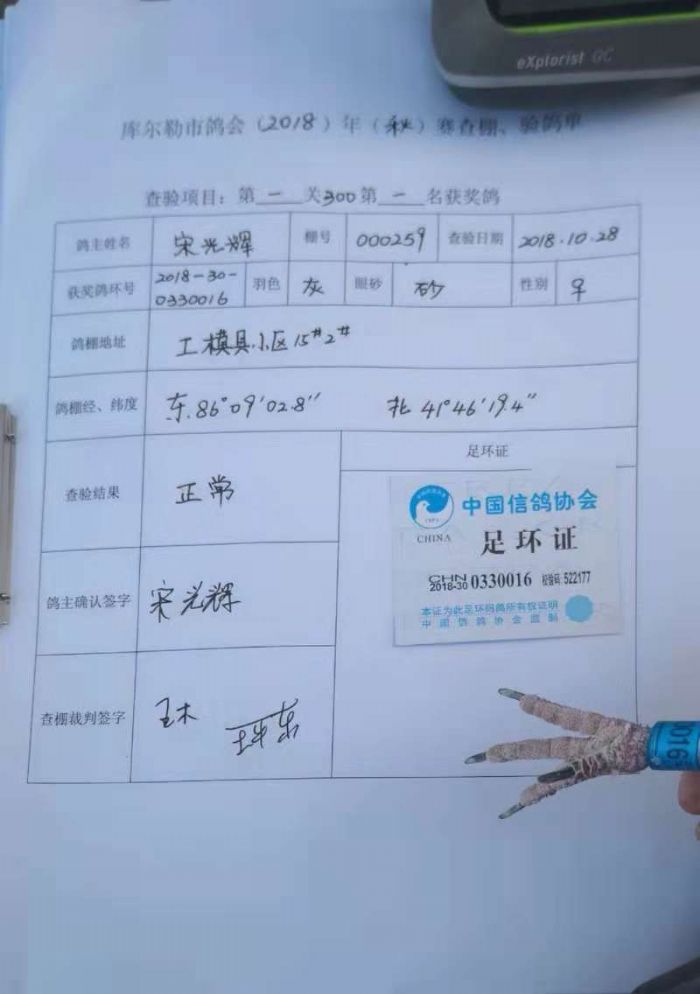 eXplorist GC
库尔勒市鸽会（2018）年（秋）赛查棚、验鸽单
查验项目：第一关300第一名获奖鸽
鸽主姓名 宋光辉 棚号 000259 查验日期 2018.10.28
获奖鸽环号 2018-30-0330016 羽色 灰 眼砂 砂 性别 ♀
鸽棚地址 工模具小区15#2#
鸽棚经、纬度 东.86°09′02.8″ 北 41°46′19.4″
查验结果 正常
足环证
中国信鸽协会
CHINA
足环证
CHN
2018-30 0330016 校验码: 522177
本证为此足环码鸽所有权证明
中国信鸽协会监制
鸽主确认签字 宋光辉
查棚裁判签字 王木
016